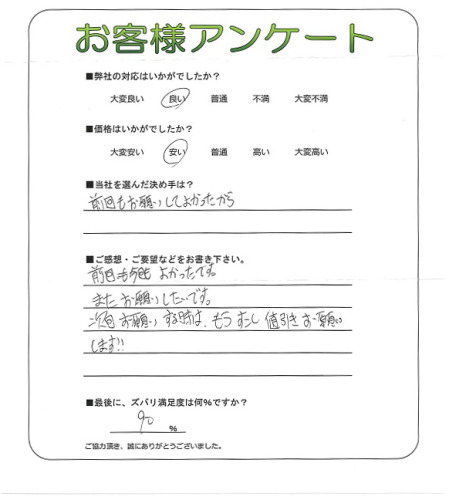 お客様アンケート
■弊社の対応はいかがでしたか?
大変良い 良い 普通 不満 大変不満
■価格はいかがでしたか?
大変安い 安い 普通 高い 大変高い
■当社を選んだ決め手は?
前回もお願いしてよかったから
■ご感想・ご要望などをお書き下さい。
前回も今回もよかったです。
またお願いしたいです。
次回お願いする時は、もうすこし値引きお願い
します!!
■最後に、ズバリ満足度は何%ですか?
90 %
ご協力頂き、誠にありがとうございました。